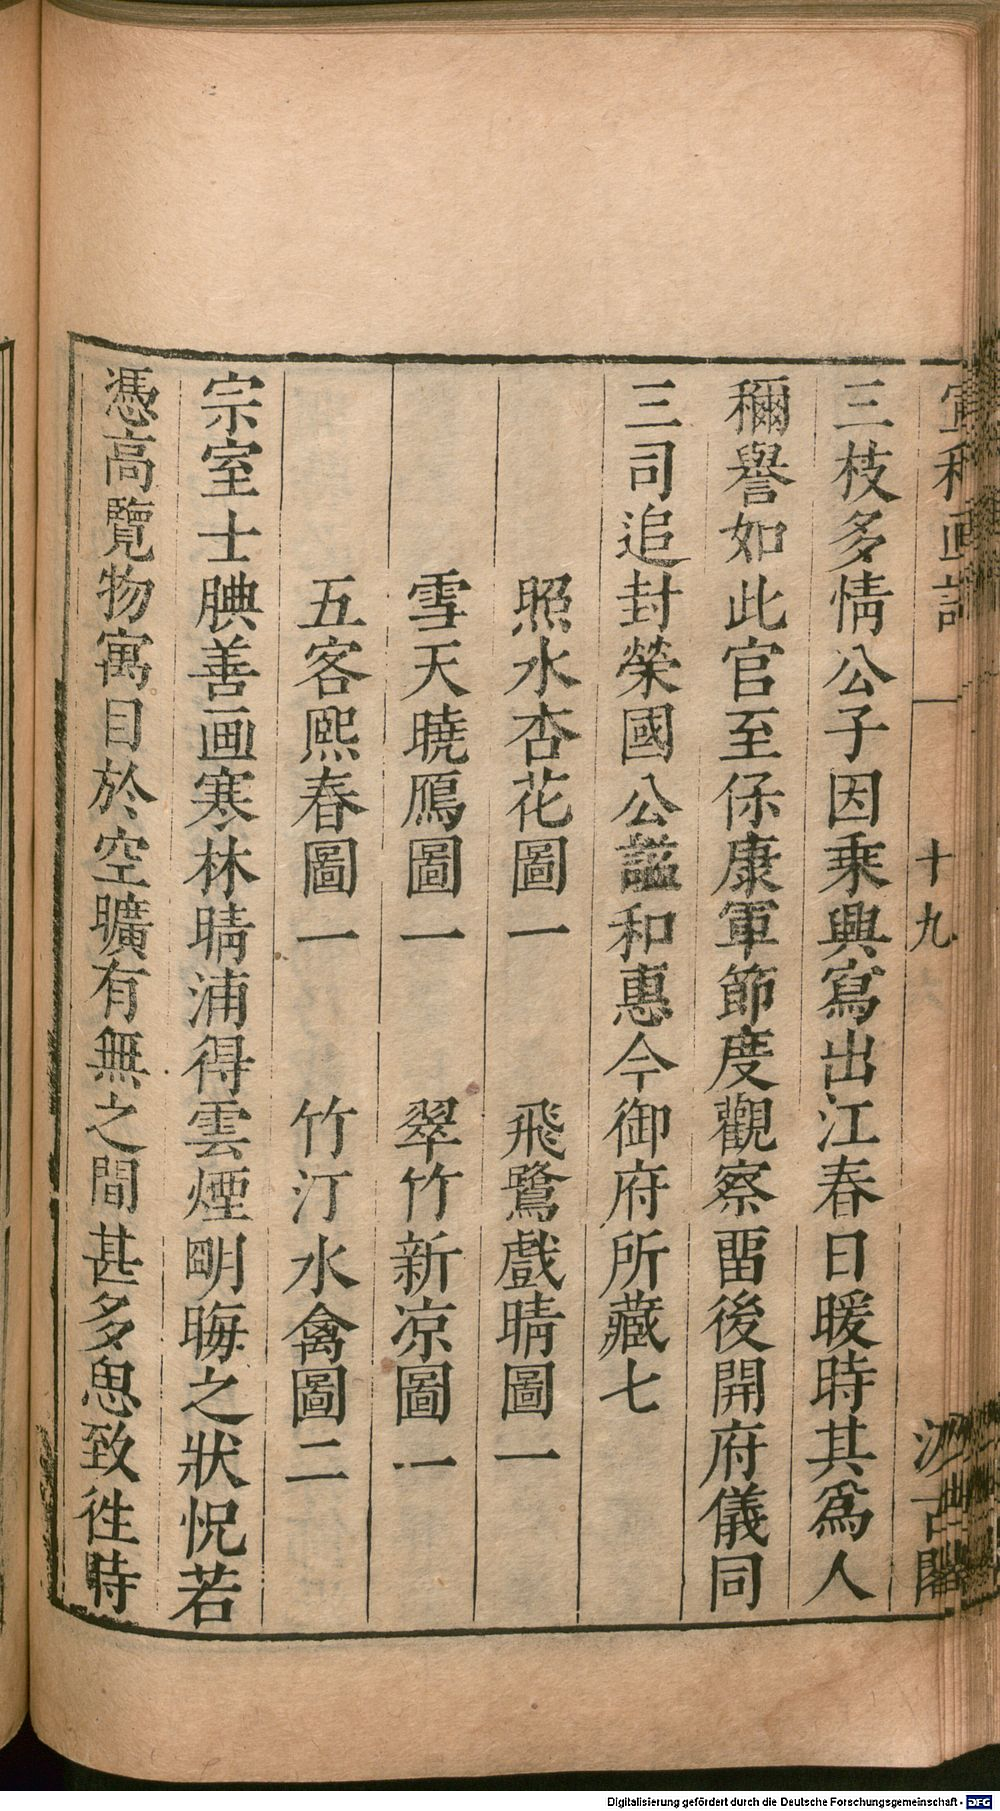 宣和画譜 十九 汲古閣
三枝多情公子因乗興寫出江春日暖時其爲人
稱譽如此官至保康軍節度觀察畱後開府儀同
三司追封榮國公謚和惠今御府所藏七
照水杏花圖一 飛鷺戲晴圖一
雪天曉鴈圖一 翠竹新凉圖一
五客熙春圖一 竹汀水禽圖二
宗室士腆善画寒林晴浦得雲煙明晦之狀怳若
憑高覽物寓目於空曠有無之間甚多思致徃時
Digitalisierung gefördert durch die Deutsche Forschungsgemeinschaft - DFG